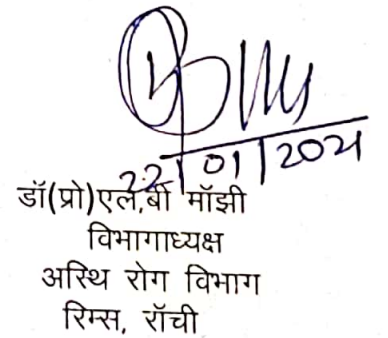 22/01/2021
डॉ(प्रो)एल.बी मॉझी
विभागाध्यक्ष
अस्थि रोग विभाग
रिम्स, रॉची